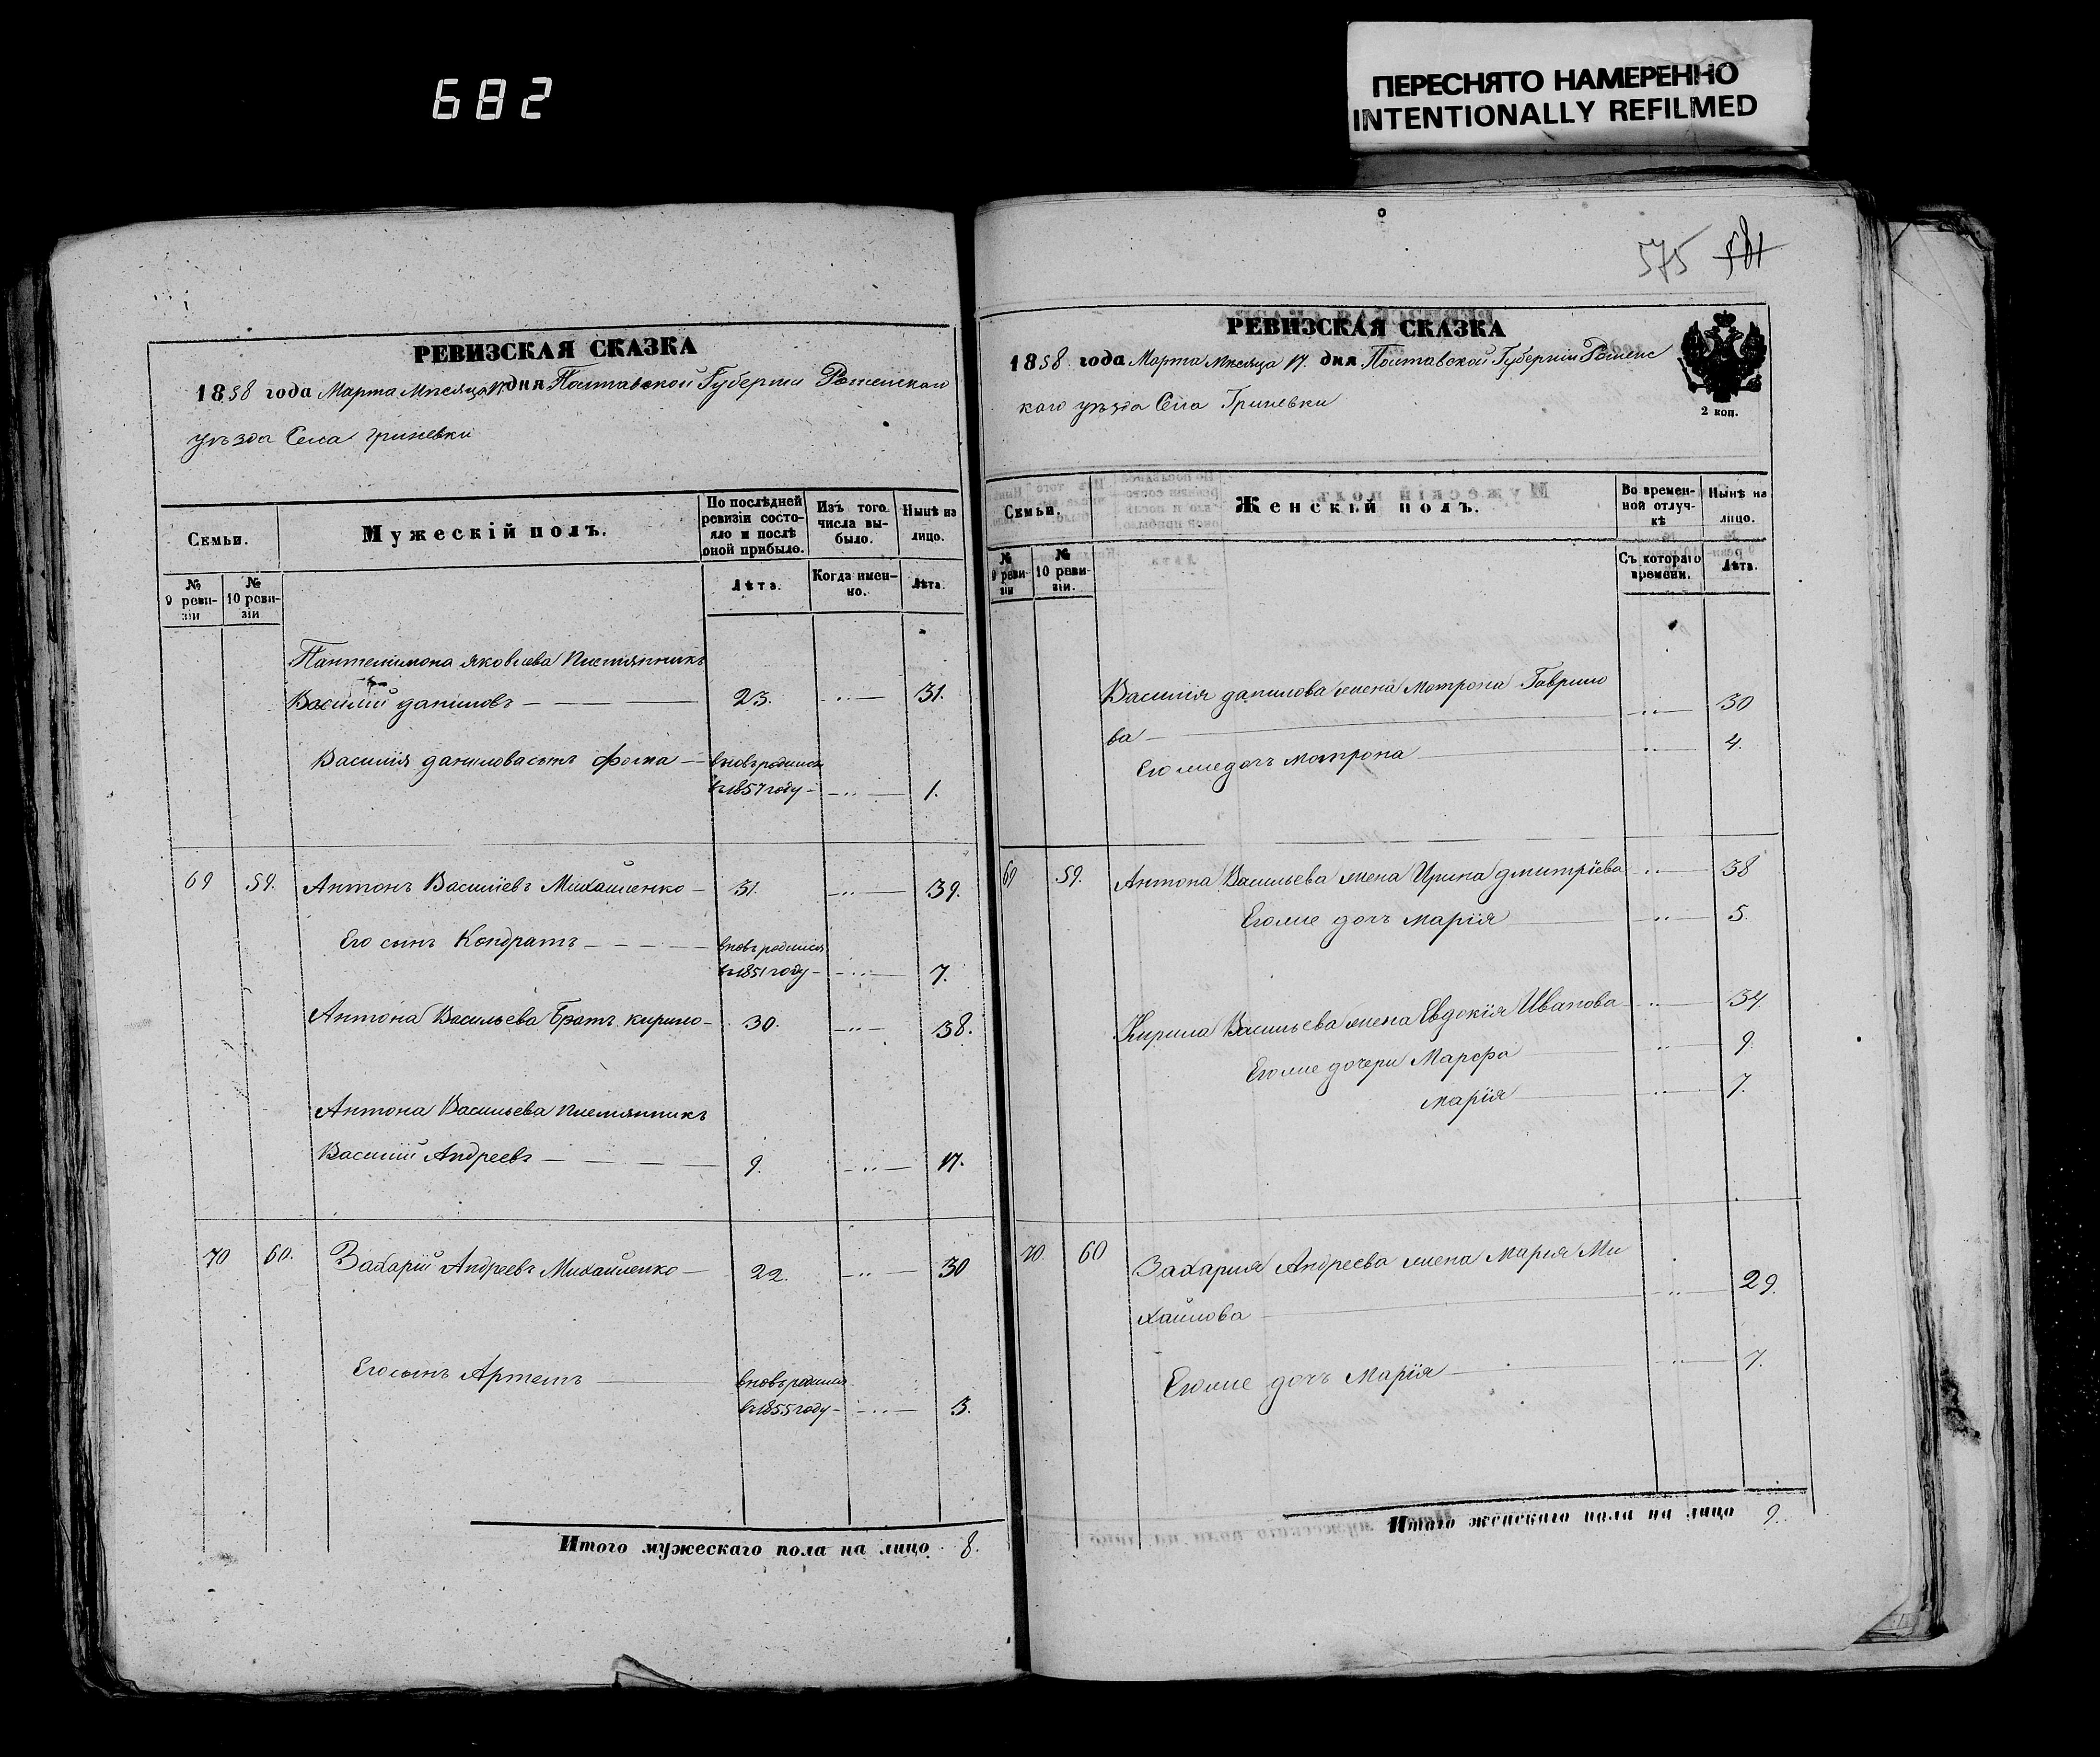 682
ПЕРЕСНЯТО НАМЕРЕННО
INTENTIONALLY REFILMED
РЕВИЗСКАЯ СКАЗКА
1858 года Марта Мѣсяца 17 дня Полтавской Губерніи Роменскаго
уѣзда Села Гриневки
Семьи.
Мужескій полъ.
По послѣдней ревизіи состояло и послѣ оной прибыло.
Изъ того числа выбыло.
Нынѣ на лицо.
№ 9 ревизіи
№ 10 ревизіи
Лѣта.
Когда именно.
Лѣта.
Пантелимона Яковлева племянникъ
Василій Даниловъ 23. 31.
Василія Данилова сынъ Фома вновь родился
въ 1857 году 1.
69 59. Антонъ Василіевъ Михайленко 31. 39.
Его сынъ Кондратъ вновь родился
въ 1851 году 7.
Антона Васильева Братъ Кирило 30. 38.
Антона Васильева племянникъ
Василій Андреевъ 9. 17.
70 60. Захарій Андреевъ Михайленко 22. 30
Его сынъ Артемъ вновь родился
въ 1855 году 3.
Итого мужескаго пола на лицо 8.
575 581
РЕВИЗСКАЯ СКАЗКА
1858 года Марта Мѣсяца 17. дня Полтавской Губерніи Роменс
каго уѣзда Села Гриневки
2 коп.
Семьи.
Женскій полъ.
Во временной отлучкѣ
Нынѣ на лицо.
№ 9 ревизіи
№ 10 ревизіи.
Съ котораго времени.
Лѣта.
Василія Данилова жена Мотрона Гаврило
ва 30
Его же дочь Мотрона 4.
69 59. Антона Васильева жена Ирина Дмитріева 38
Его же дочь Марія 5.
Кирила Васильева жена Евдокія Иванова 34.
Его же дочери Марфа 9.
Марія 7.
70. 60 Захарія Андреева жена Марія Ми
хайлова 29.
Его же дочь Марія 7.
Итого женскаго пола на лицо 9.